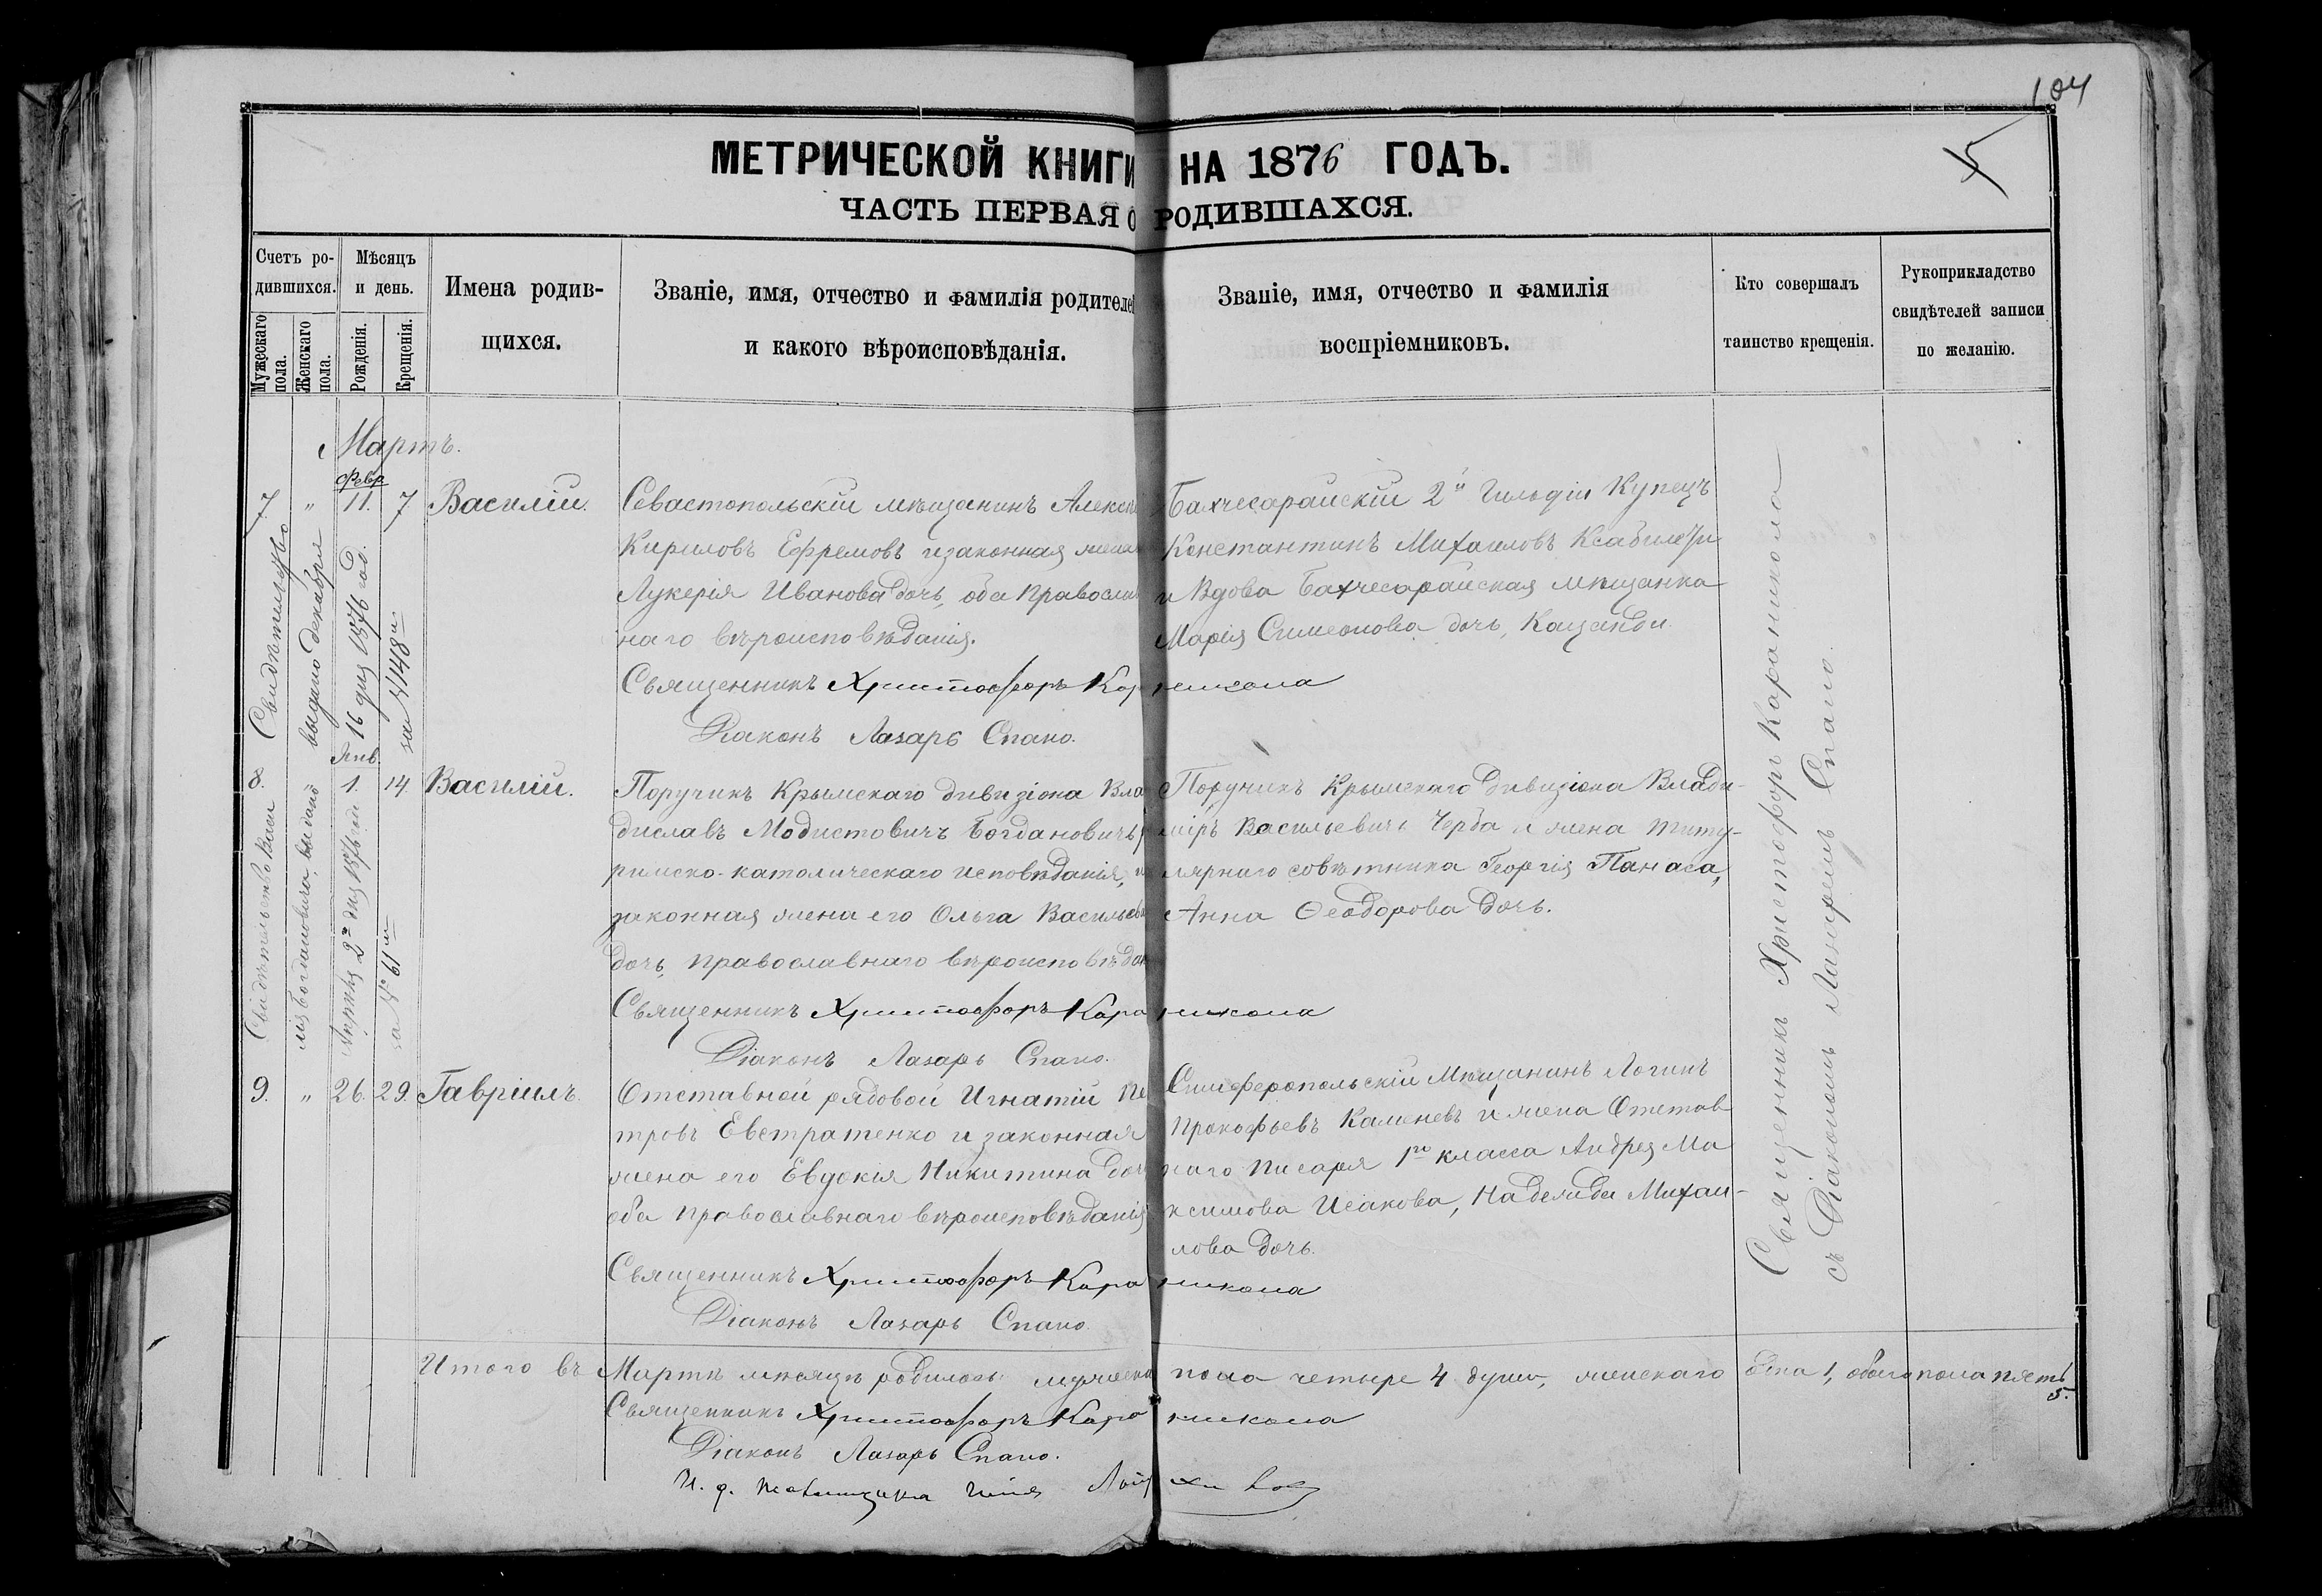 104
5
МЕТРИЧЕСКОЙ КНИГИ НА 1876 ГОДЪ.
ЧАСТЬ ПЕРВАЯ О РОДИВШАХСЯ.
Счетъ ро-
дившихся.
Мужескаго пола.
Женскаго пола.
Мѣсяцъ
и день.
Рожденія.
Крещенія.
Имена родив-
щихся.
Званіе, имя, отчество и фамилія родителей
и какого вѣроисповѣданія.
Званіе, имя, отчество и фамилія
воспріемниковъ.
Кто совершалъ
таинство крещенія.
Рукоприкладство
свидѣтелей записи
по желанію.
Мартъ.
Февр.
7 " 11. 7 Василій.
Севастопольскій мѣщанинъ Алексѣ
Кириловъ Ефремовъ и законная жена
Лукерія Иванова дочь, оба Православ
наго вѣроисповѣданія.
Священникъ Христофоръ Кара
Діаконъ Лазарь Спано.
Бахчесарайскій 2й Гильдіи Купецъ
Константинъ Михаиловъ
и Вдова Бахчесарайская мѣщанка
Марія Симеонова дочь,
никола
Свидѣтельство
выдано декабря
16 дня 1876 год.
за №148м
Янв.
8. 1. 14 Василій.
Поручикъ Крымскаго дивизіона Вла
диславъ Модистовичъ Богдановичъ,
римско-католическаго исповѣданія, и
законная жена его Ольга Васильева
дочь, православнаго вѣроисповѣдан
Священникъ Христофоръ Кара
Діаконъ Лазарь Спано.
Поручикъ Крымскаго дивизіона Влади-
міръ Васильевичъ Черба и жена титу-
лярнаго совѣтника Георгія Панаса,
Анна Ѳеодорова дочь.
никола
Свидѣтельство Васи
лія Богдановича, выдано
Апрѣля 2го дня 1876 год
за №61м
9. " 26. 29. Гавріилъ.
Отставной рядовой Игнатій Пе
тровъ Евстратенко и законная
жена его Евдокія Никитина доч
оба православнаго вѣроисповѣданія
Священникъ Христофоръ Кара
Діаконъ Лазарь Спано.
Симферопольскій Мѣщанинъ Логинъ
Прокофьевъ Калиневъ и жена Отстав
наго писаря 1го класса Андрея Ма
ксимова Исакова, Надежда Михаи-
лова дочь.
никола
Священникъ Христофоръ Караникола
съ Діакономъ Спано.
Итого въ Мартѣ мѣсяцѣ родилось мужеска пола четыре 4 души, женскаго одна 1, обоего пола пять
5.
Священникъ Христофоръ Кара никола
Діаконъ Лазарь Спано.
И. д.